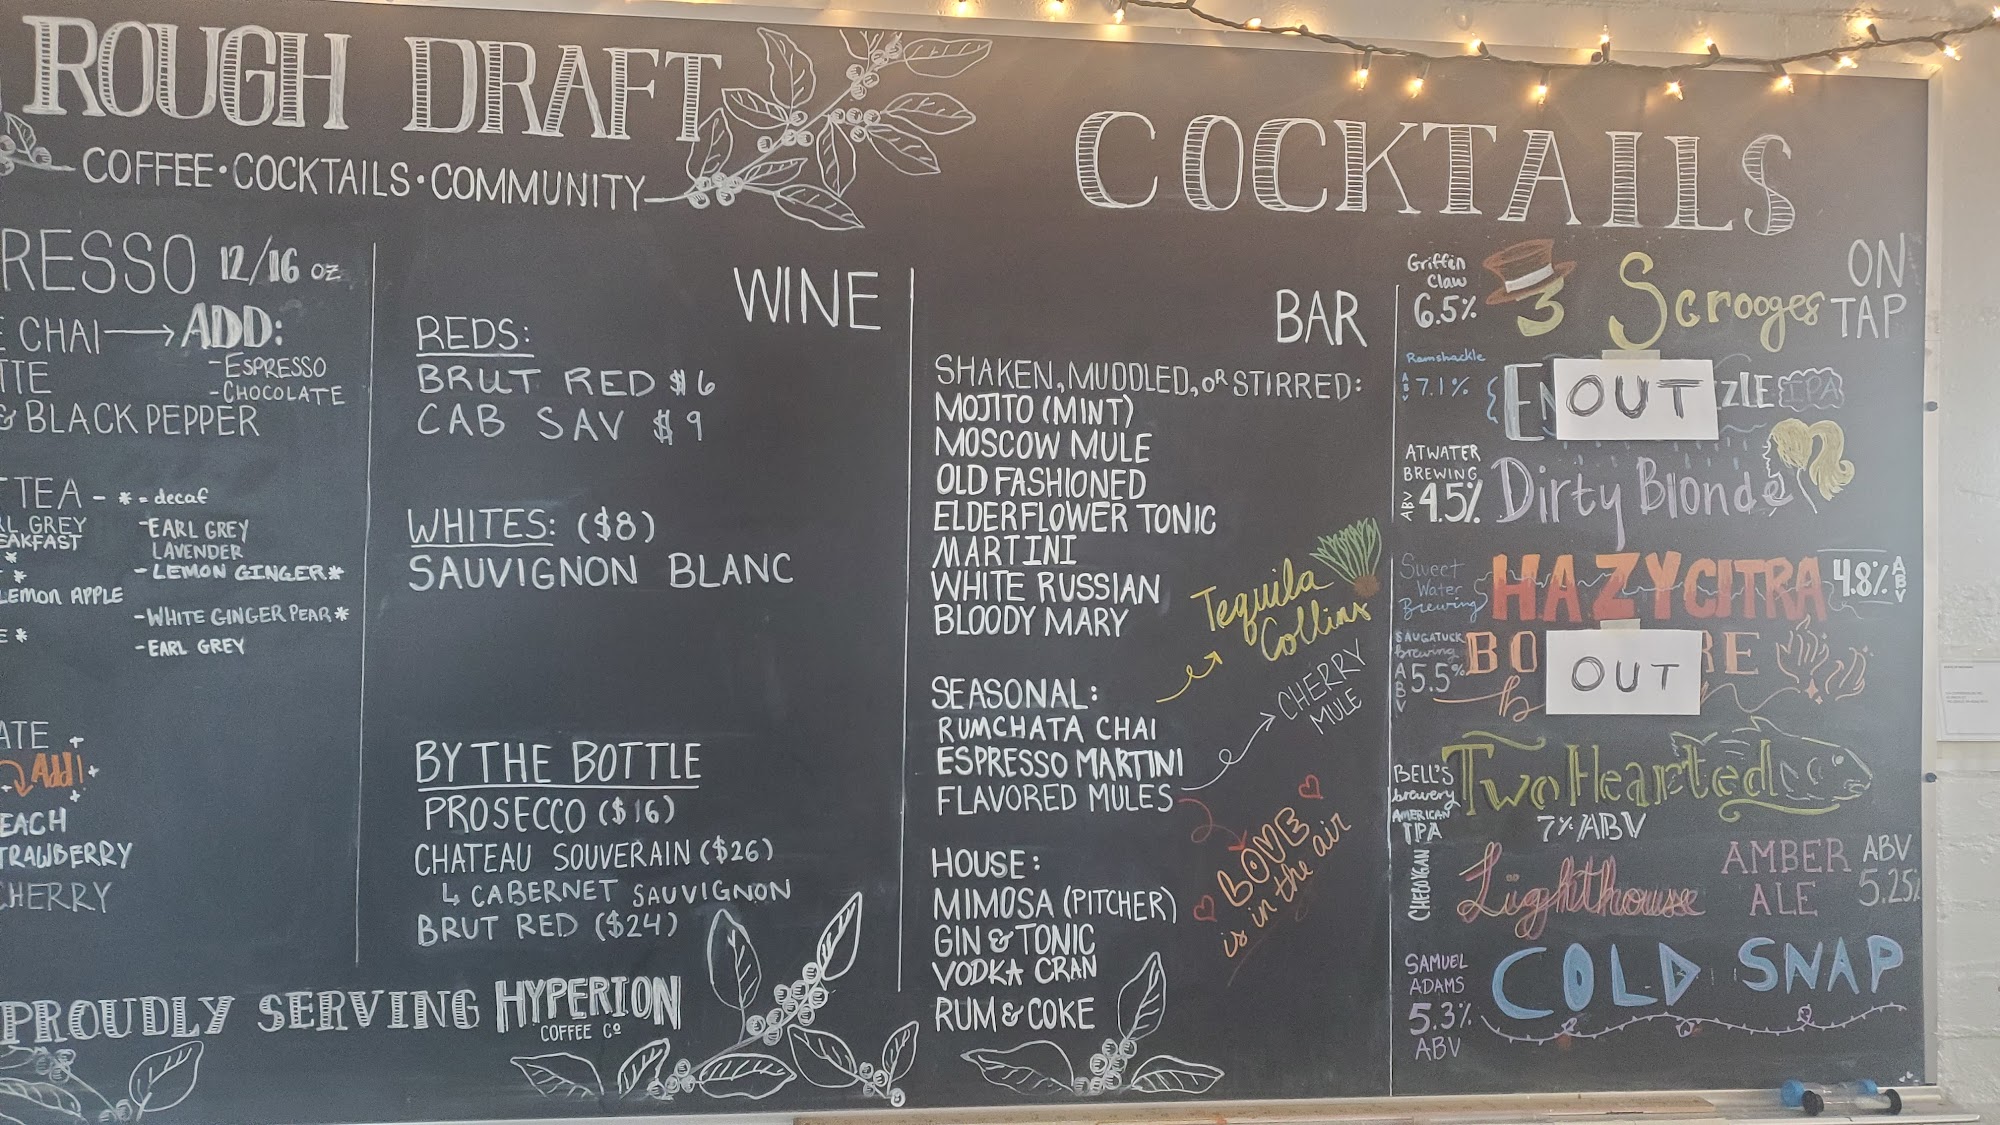 ROUGH DRAFT
COFFEE · COCKTAILS · COMMUNITY
RESSO 12/16 oz
CHAI → ADD:
- ESPRESSO
- CHOCOLATE
TTE
& BLACK PEPPER
TEA - * = decaf
L GREY
EAKFAST
*
*
LEMON APPLE
E *
- EARL GREY
LAVENDER
- LEMON GINGER *
- WHITE GINGER PEAR *
- EARL GREY
ATE
Add!
EACH
TRAWBERRY
CHERRY
PROUDLY SERVING HYPERION
COFFEE Cº
WINE
REDS:
BRUT RED $6
CAB SAV $9
WHITES: ($8)
SAUVIGNON BLANC
BY THE BOTTLE
PROSECCO ($16)
CHATEAU SOUVERAIN ($26)
↳ CABERNET SAUVIGNON
BRUT RED ($24)
COCKTAILS
BAR
SHAKEN, MUDDLED, OR STIRRED:
MOJITO (MINT)
MOSCOW MULE
OLD FASHIONED
ELDERFLOWER TONIC
MARTINI
WHITE RUSSIAN
BLOODY MARY
Tequila
Collins
SEASONAL:
RUMCHATA CHAI
ESPRESSO MARTINI
FLAVORED MULES
CHERRY
MULE
LOVE
is in the air
HOUSE:
MIMOSA (PITCHER)
GIN & TONIC
VODKA CRAN
RUM & COKE
ON
TAP
Griffin
Claw
6.5%
3 Scrooges
Ramshackle
ABV 7.1%
EN
OUT
ZLE IPA
ATWATER
BREWING
ABV 4.5%
Dirty Blonde
Sweet
Water
Brewing
HAZY CITRA
4.8% ABV
SAUGATUCK
Brewing
ABV 5.5%
BO
OUT
RE
BELL'S
brewery
AMERICAN
IPA
Two Hearted
7% ABV
CHEBOYGAN
Lighthouse
AMBER
ALE
ABV
5.25%
SAMUEL
ADAMS
5.3%
ABV
COLD SNAP